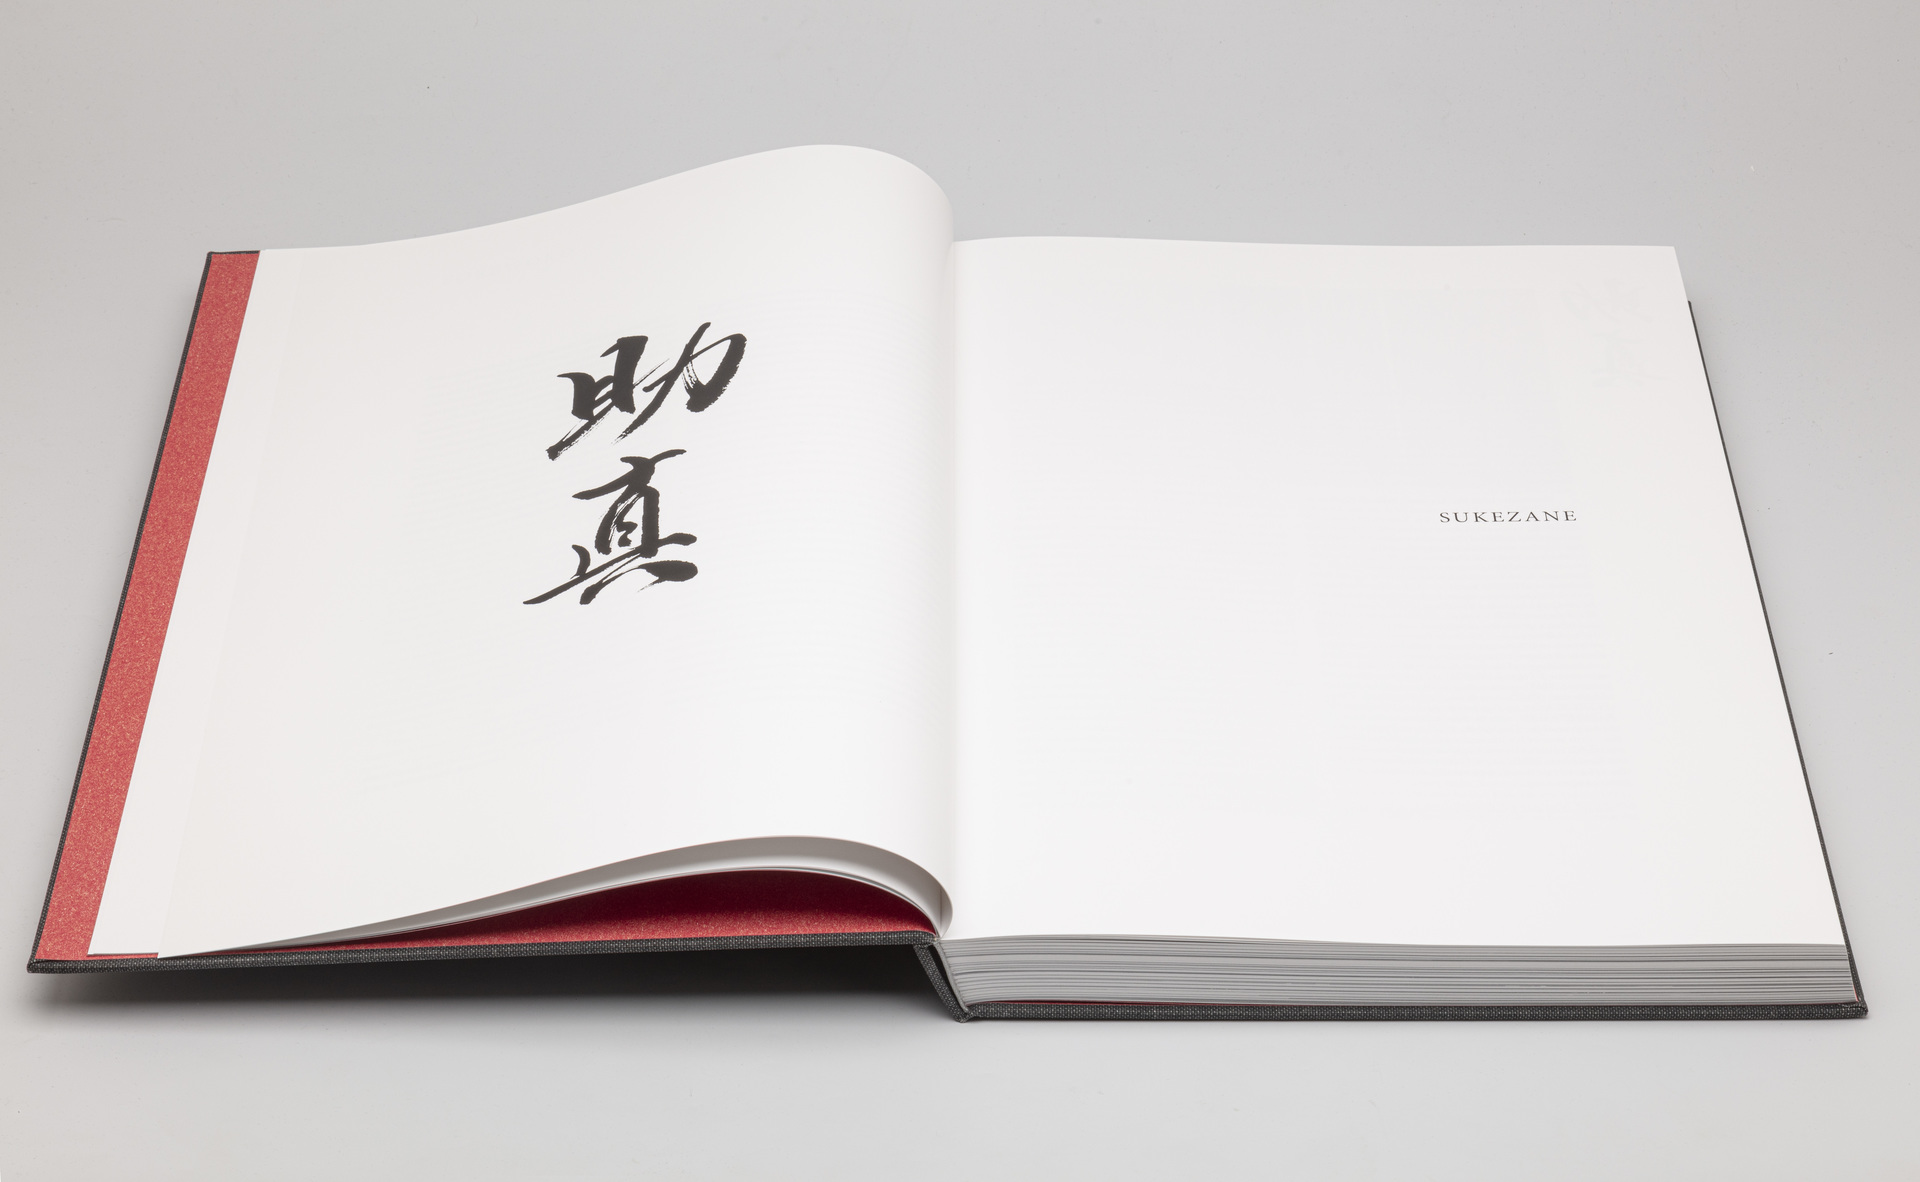 助真
SUKEZANE